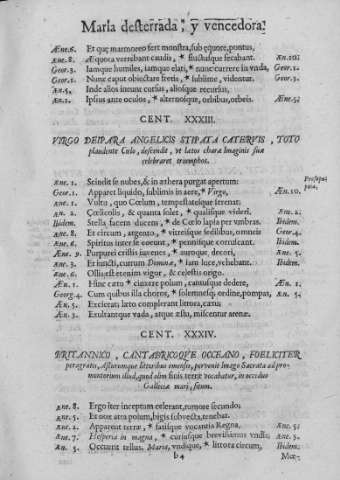 Maria desterrada, y vencedora.
Æne.6. Et quæ marmoreo fert monstra, sub æquore, pontus,
Æne.8. Æquora verrebant caudis, * fluctusque secabant. Æn.
Geor.3. Iamque humiles, iamque elati, * nunc currere in vada, Geor.1.
Geor.1. Nunc caput obiectare fretis, * sublime, videntur. Geor.3.
Æn.5. Inde alios ineunt cursus, aliosque recursus,
Æn.2. Ipsius ante oculos, * alternosque, orbibus, orbeis. Æne.5.
CENT. XXXIII.
VIRGO DEIPARA ANGELICIS STIPATA CATERVIS, TOTO
plaudente Cœlo, descendit, vt latos chara Imaginis suæ
celebraret triumphos.
Æne.1. Scindit se nubes, & in æthera purgat apertum:
Geor.1. Apparet liquido, sublimis in aere, * Virgo, Æn.10.
Æne.1. Vultu, quo Cœlum, tempestatesque serenat;
Æn.2. Cœlicolis, & quanta solet, * qualisque videri. Æn.2.
Ibidem. Stella, facem ducens, * de Cœlo lapsa per vmbras. Ibidem.
Æne.8. Et circum, argento, * vitreisque sedilibus, omneis Geor.4.
Æne.6. Spiritus inter se coeunt, * pennisque corruscant. Ibidem.
Æne.9. Purpurei cristis iuvenes, * auroque, decori, Æne.5.
Æne.3. Et iuncti, currum Dominæ, * iam luce, vehebant. Ibidem.
Æne.6. Ollis, est etenim vigor, & celestis origo.
Æn.1. Hinc catu * cingere polum, cantusque dedere, Æn.1.
Georg.4. Cum quibus illa choros, * solemnesque ordine, pompas, Æn.5.
Æn.5. Exercet; læto complerant littora, cœtu
Æn.3. Exultantque vada, atque æstu, miscentur arenæ.
CENT. XXXIV.
BRITANNICO, CANTABRICOQUE OCCEANO, FOELICITER
peragrato, Asturumque littoribus emensis, pervenit Imago Sacrata ad promontorium illud, quod olim finis terræ vocabatur, in occiduo
Galleciæ mari, situm.
Æne.8. Ergo iter inceptum celerant, rumore secundo;
Æne.5. Et nox atra polum, bigis subvecta, tenebat.
Æn.2. Apparet terræ, * fatisque vocantis Regna. Æn.5.
Æne.7. Hesperia in magna, * cursusque brevissimus vndis; Æn.
Æn.5. Occurrit tellus. Maria, vndique, * littora circum, Ibidem.
b4